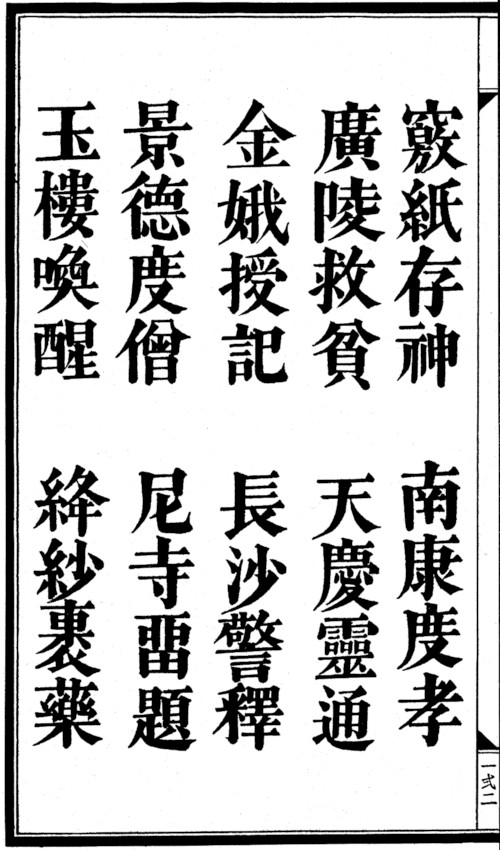 竅紙存神　南康度孝
廣陵救貧　天慶靈通
金娥授記　長沙警釋
景德度僧　尼寺畱題
玉樓喚醒　絳紗裹藥
一弍二